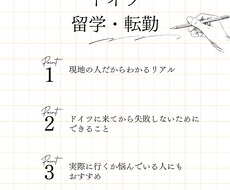 ドイツ
留学・転勤
Point
1
現地の人だからわかるリアル
Point
2
ドイツに来てから失敗しないために
できること
Point
3
実際に行くか悩んでいる人にも
おすすめ